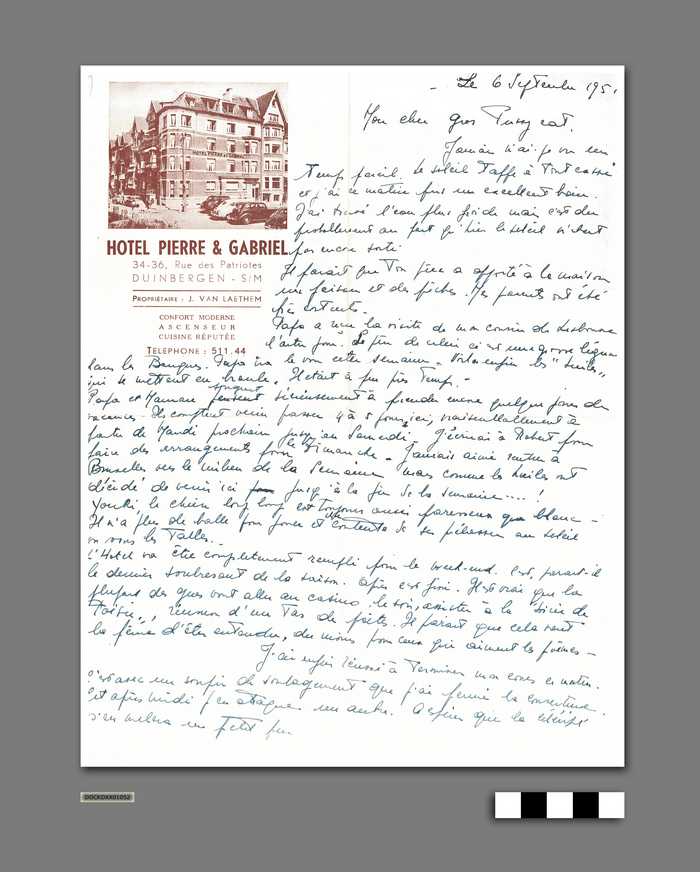 Le 6 Septembre 195
Mon cher gros Pussycat.
Jamais n'ai-je vu un
Temps pareil. Le soleil Tape à Tout casser
et j'ai ce matin pris un excellent bain.
J'ai trouvé l'eau plus froide mais c'est du
probablement au fait qu'hier le soleil n'était
pas encore sorti.
HOTEL PIERRE & GABRIEL
34-36, Rue des Patriotes
DUINBERGEN - S/M
PROPRIÉTAIRE : J. VAN LAETHEM
CONFORT MODERNE
ASCENSEUR
CUISINE RÉPUTÉE
TELEPHONE : 511.44
Il parait que Ton père a apporté à la maison
un faisan et des pêches. Mes parents ont été
très contents.
Papa a eu la visite de mon cousin de Lisbonne
l'autre jour. Le père de celui ci est une grosse légume
dans les Banques. Papa ira le voir cette semaine. Voilà enfin les "huiles"
qui se mettent en branle. Il était à peu près Temps.-
Papa et Maman pensent sérieusement à prendre encore quelques jours de
vacances. Ils comptent venir passer 4 à 5 jours ici, vraisemblablement à
partir de Mardi prochain jusqu'au Samedi. J'écrirai à Robert pour
faire des arrangements pour le Dimanche. J'aurais aimé rentrer à
Bruxelles vers le milieu de la Semaine mais comme les huiles ont
décidé de venir ici jusqu'à la fin de la semaine....!
Youki, le chien loup loup est toujours aussi paresseux que blanc -
Il n'a plus de balle pour jouer et se contente de se prélasser au soleil
ou sous les Tables.
L'Hotel va être complètement rempli pour le week-end. C'est, parait-il
le dernier soubresaut de la saison. Après c'est fini. Il est vrai que la
plupart des gens vont aller au casino, le soir, assister à la "Soirée de
Poésie", réunion d'un Tas de poètes. Il parait que cela vaut
la peine d'être entendu, du moins pour ceux qui aiment les poèmes -
J'ai enfin réussi à Terminer mon cours ce matin.
C'est avec un soupir de soulagement que j'ai fermé la couverture.
Cet après midi j'en attaque un autre. Espérons que la
s'en mêlera un petit peu.
DOCKDXX01052